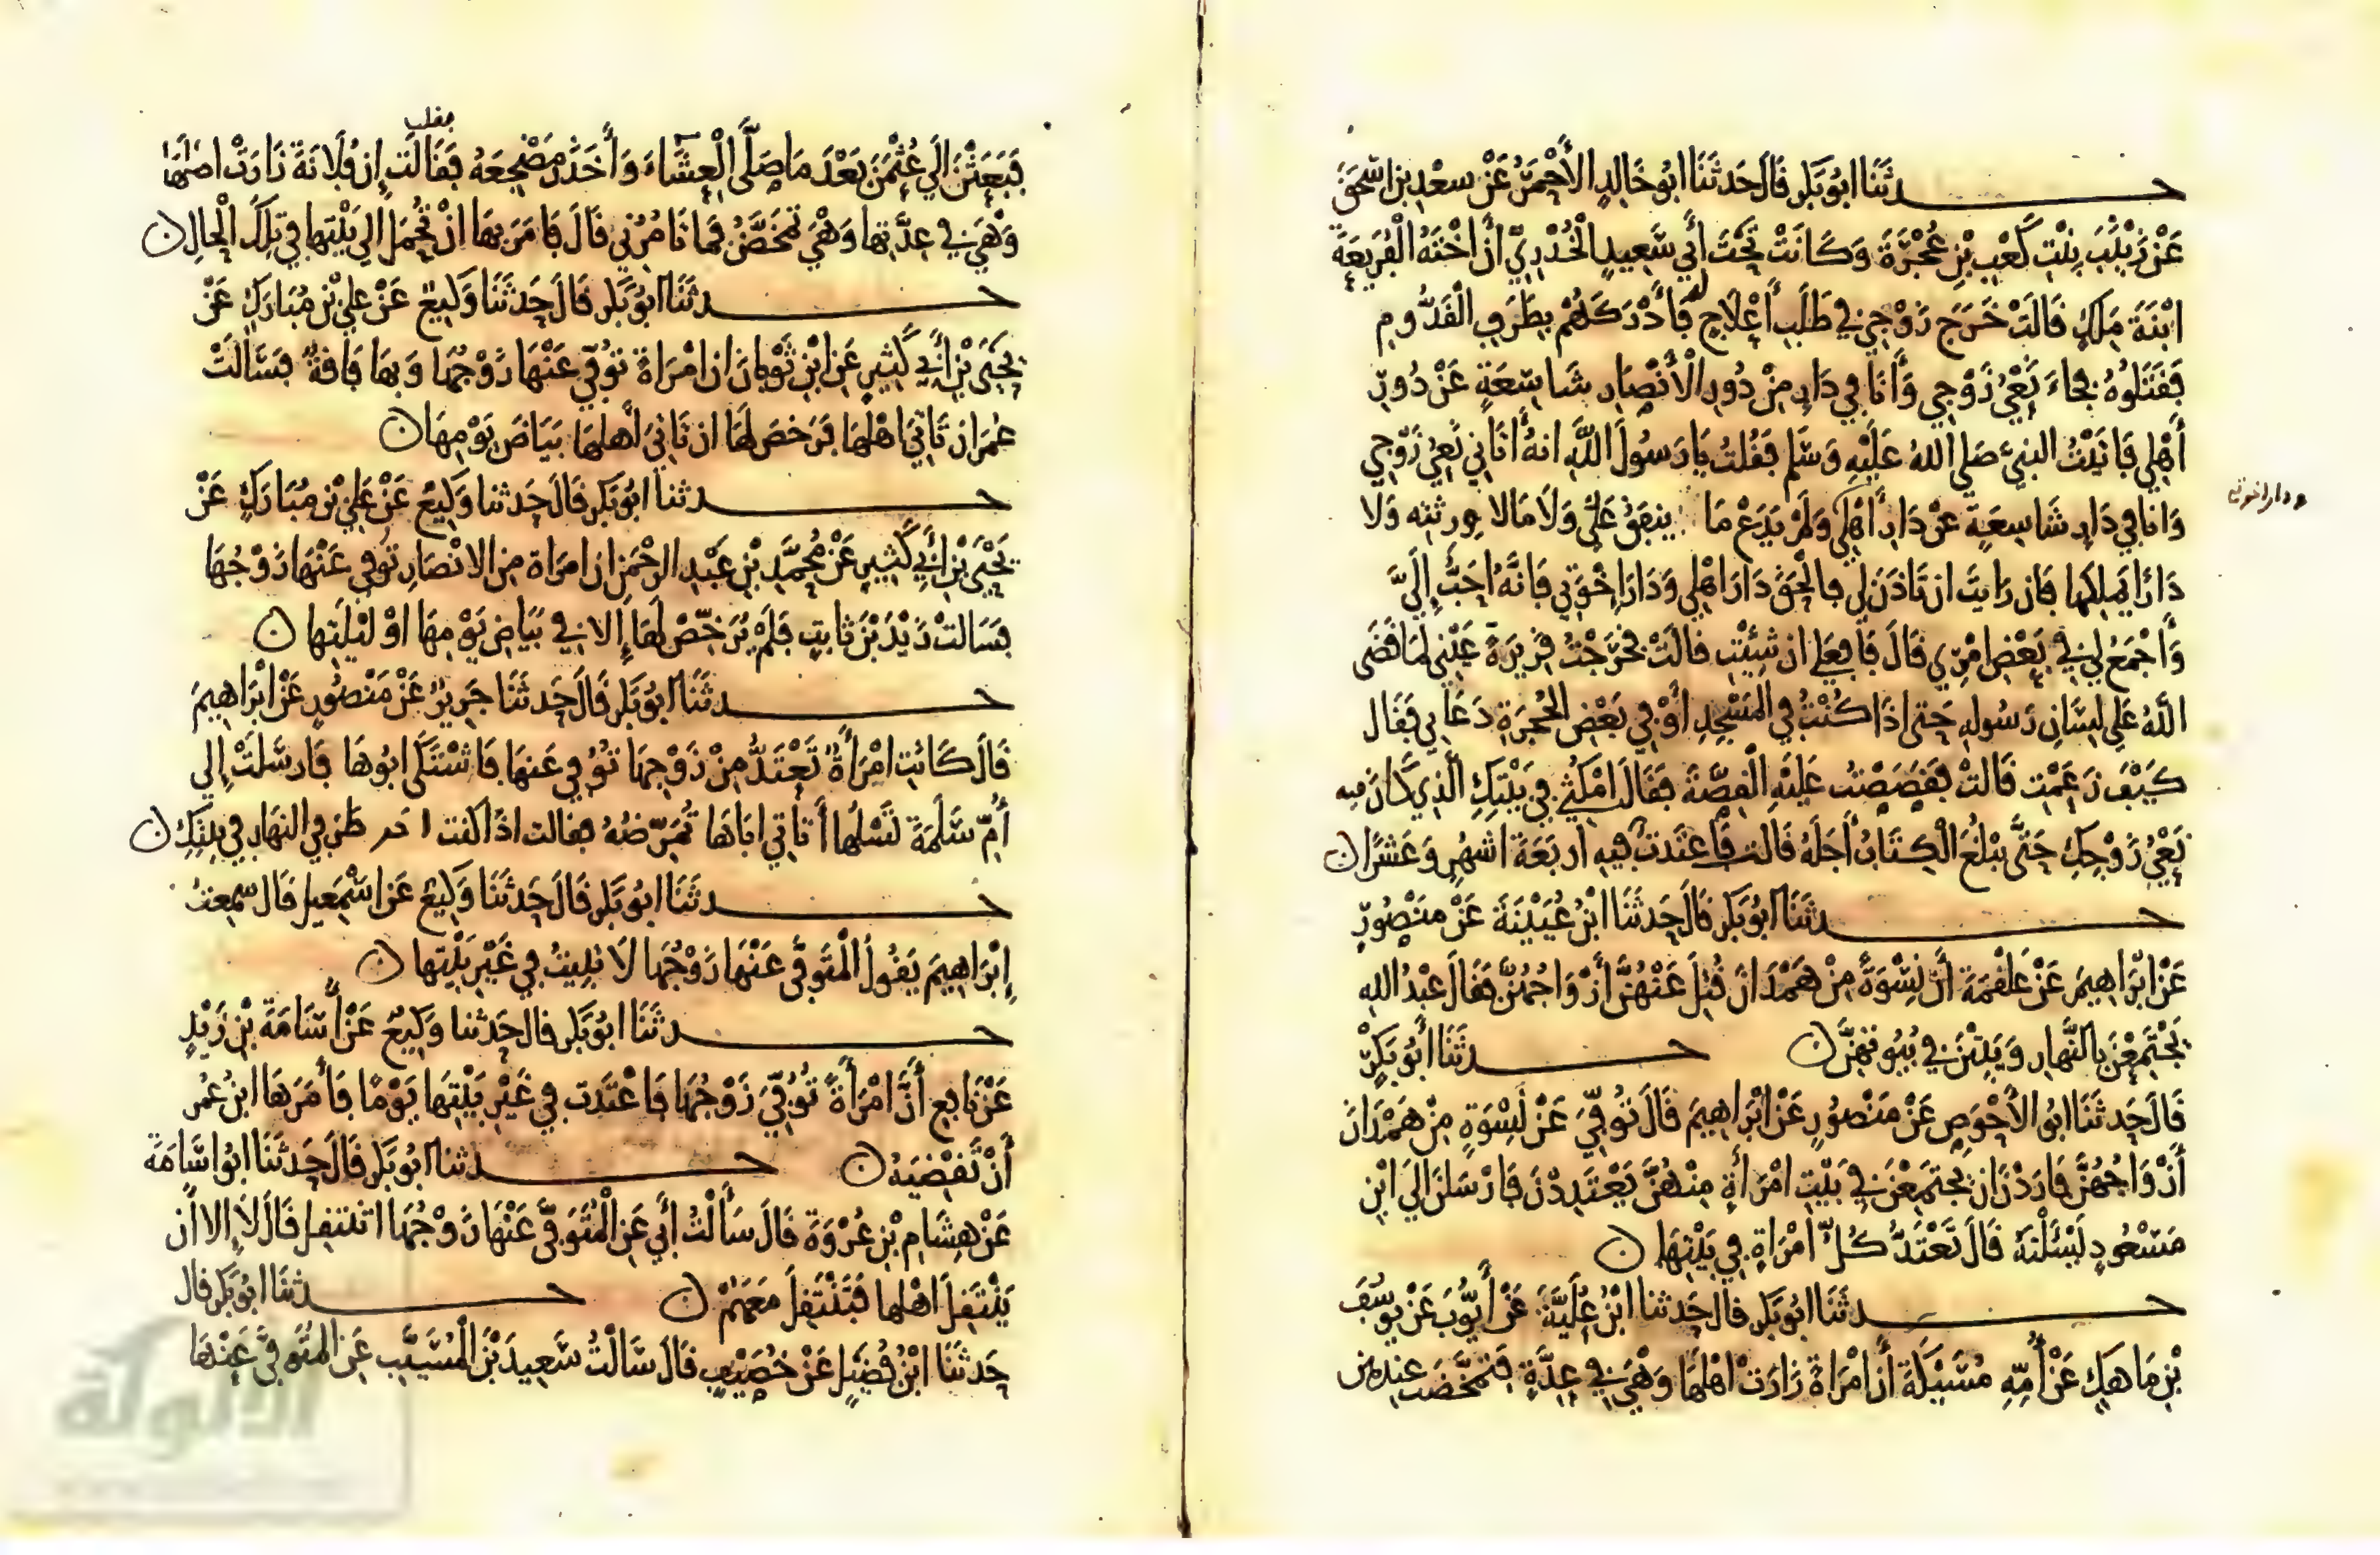 حدثنا ابو بكر قال حدثنا ابو خالد الأحمر عن سعد بن اسحق
عن زينب بنت كعب بن عجرة وكانت تحت أبي سعيد الخدري أن اخته الفريعة
ابنة ملك قالت خرج زوجي في طلب أعلاج له فأدركهم بطرف القدوم
فقتلوه فجاء نعي زوجي وأنا في دار من دور الأنصار شاسعة عن دور
أهلي فاتيت النبي صلى الله عليه وسلم فقلت يا رسول الله انه أتاني نعي زوجي
وانا في دار شاسعة عن دار أهلي ولم يدع ما ينفق علي ولا مالا ورثته ولا
ودار اخوتي
دارا يملكها فان رايت ان تاذن لي فالحق دار اهلي ودار إخوتي فانه احب إلي
وأجمع لي في بعض امري قال فافعلي ان شئت قالت فخرجت قريرة عيني لما قضى
الله على لسان رسوله حتى اذا كنت في المسجد أو في بعض الحجرة دعاني فقال
كيف زعمت قالت فقصصت عليه القصة فقال امكثي في بيتك الذي كان فيه
نعي زوجك حتى يبلغ الكتاب أجله قالت فاعتدت فيه اربعة اشهر وعشرا ن
حدثنا ابو بكر قال حدثنا ابن عيينة عن منصور
عن ابراهيم عن علقمة أن نسوة من همدان قتل عنهن أزواجهن فقال عبد الله
يجتمعن بالنهار ويبتن في بيوتهن ن حدثنا أبو بكر
قال حدثنا ابو الأحوص عن منصور عن ابراهيم قال توفي عن نسوة من همدان
أزواجهن فاردن ان يجتمعن في بيت امرأة منهن يعتددن فارسلن الى ابن
مسعود يسئلنه قال تعتد كل امرأة في بيتها ن
حدثنا ابو بكر قال حدثنا ابن علية عن أيوب عن يوسف
بن ماهك عن أمه مسيكة أن امرأة زارت اهلها وهي في عدة فتمخضت عندهن
فبعثن الي عثمن بعد ما صلى العشاء وأخذ مضجعه فقالت إن فلانة زارت اهلها
وهي في عدتها وهي تمخض فما تامرني قال فامر بها ان تحمل الي بيتها في تلك الحال ن
حدثنا ابو بكر قال حدثنا وكيع عن علي بن مبارك عن
يحيى بن أبي كثير عن ابن ثوبان ان امرأة توفي عنها زوجها وبها فاقة فسألت
عمر ان تاتي اهلها فرخص لها ان تاتي أهلها بياض يومها ن
حدثنا ابو بكر قال حدثنا وكيع عن علي بن مبارك عن
يحيى بن أبي كثير عن محمد بن عبد الرحمن ان امراة من الانصار توفي عنها زوجها
فسالت زيد بن ثابت فلم يرخص لها إلا في بياض يومها او ليلتها ن
حدثنا ابو بكر قال حدثنا جرير عن منصور عن ابراهيم
قال كانت امرأة تعتد من زوجها توفي عنها فاشتكى ابوها فارسلت إلي
أم سلمة تسلها أتاتي اباها تمرضه فقالت اذا كنت احد طرفي النهار في بيتك ن
حدثنا ابو بكر قال حدثنا وكيع عن اسمعيل قال سمعت
إبراهيم يقول المتوفى عنها زوجها لا تبيت في غير بيتها ن
حدثنا ابو بكر قال حدثنا وكيع عن أسامة بن زيد
عن نافع أن امرأة توفي زوجها فاعتدت في غير بيتها يوما فأمرها ابن عمر
أن تقضيه ن حدثنا ابو بكر قال حدثنا ابو اسامة
عن هشام بن عروة قال سألت أبي عن المتوفى عنها زوجها اتنتقل قال لا إلا أن
ينتقل اهلها فتنتقل معهم ن حدثنا ابو بكر قال
حدثنا ابن فضيل عن خصيف قال سالت سعيد بن المسيب عن المتوفى عنها
الألوكة